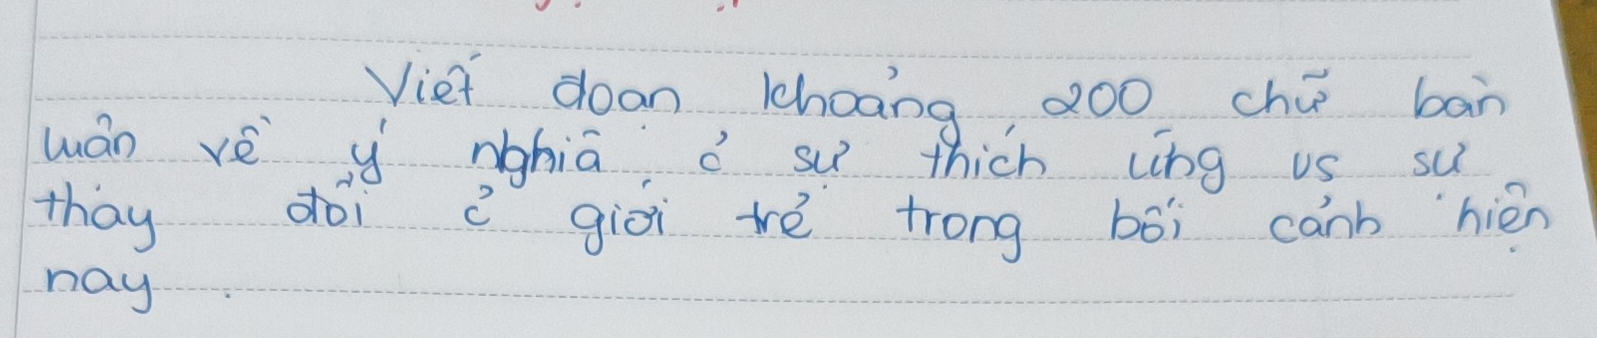 Viết đoạn khoảng 200 chữ bàn
luận về ý nghĩa ở sự thích ứng vs sự
thay đổi ở giới trẻ trong bối cảnh hiện
nay.